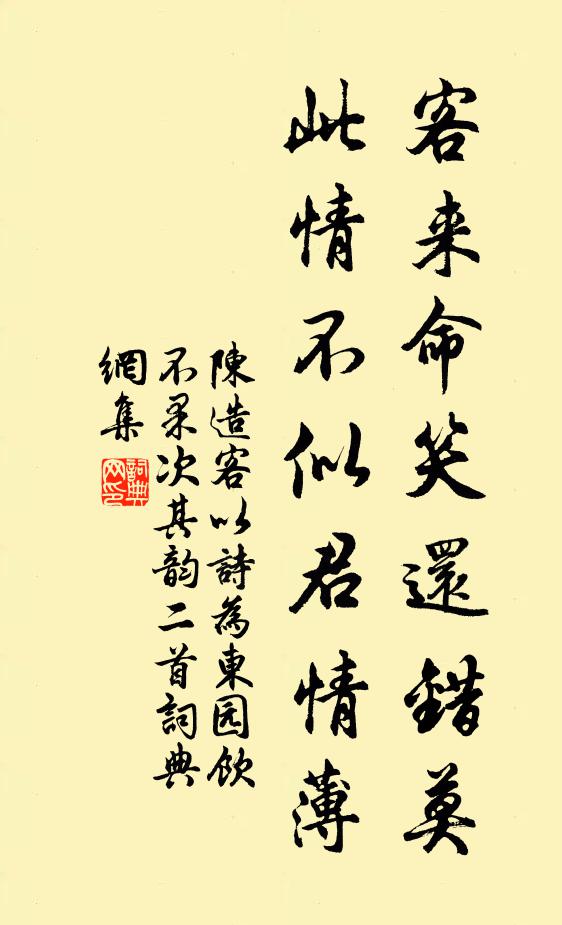 客来命笑還錯莫
此情不似君情薄
陳造客以詩為東园飲
不果次其韵二首詞典
網集
詞典网印